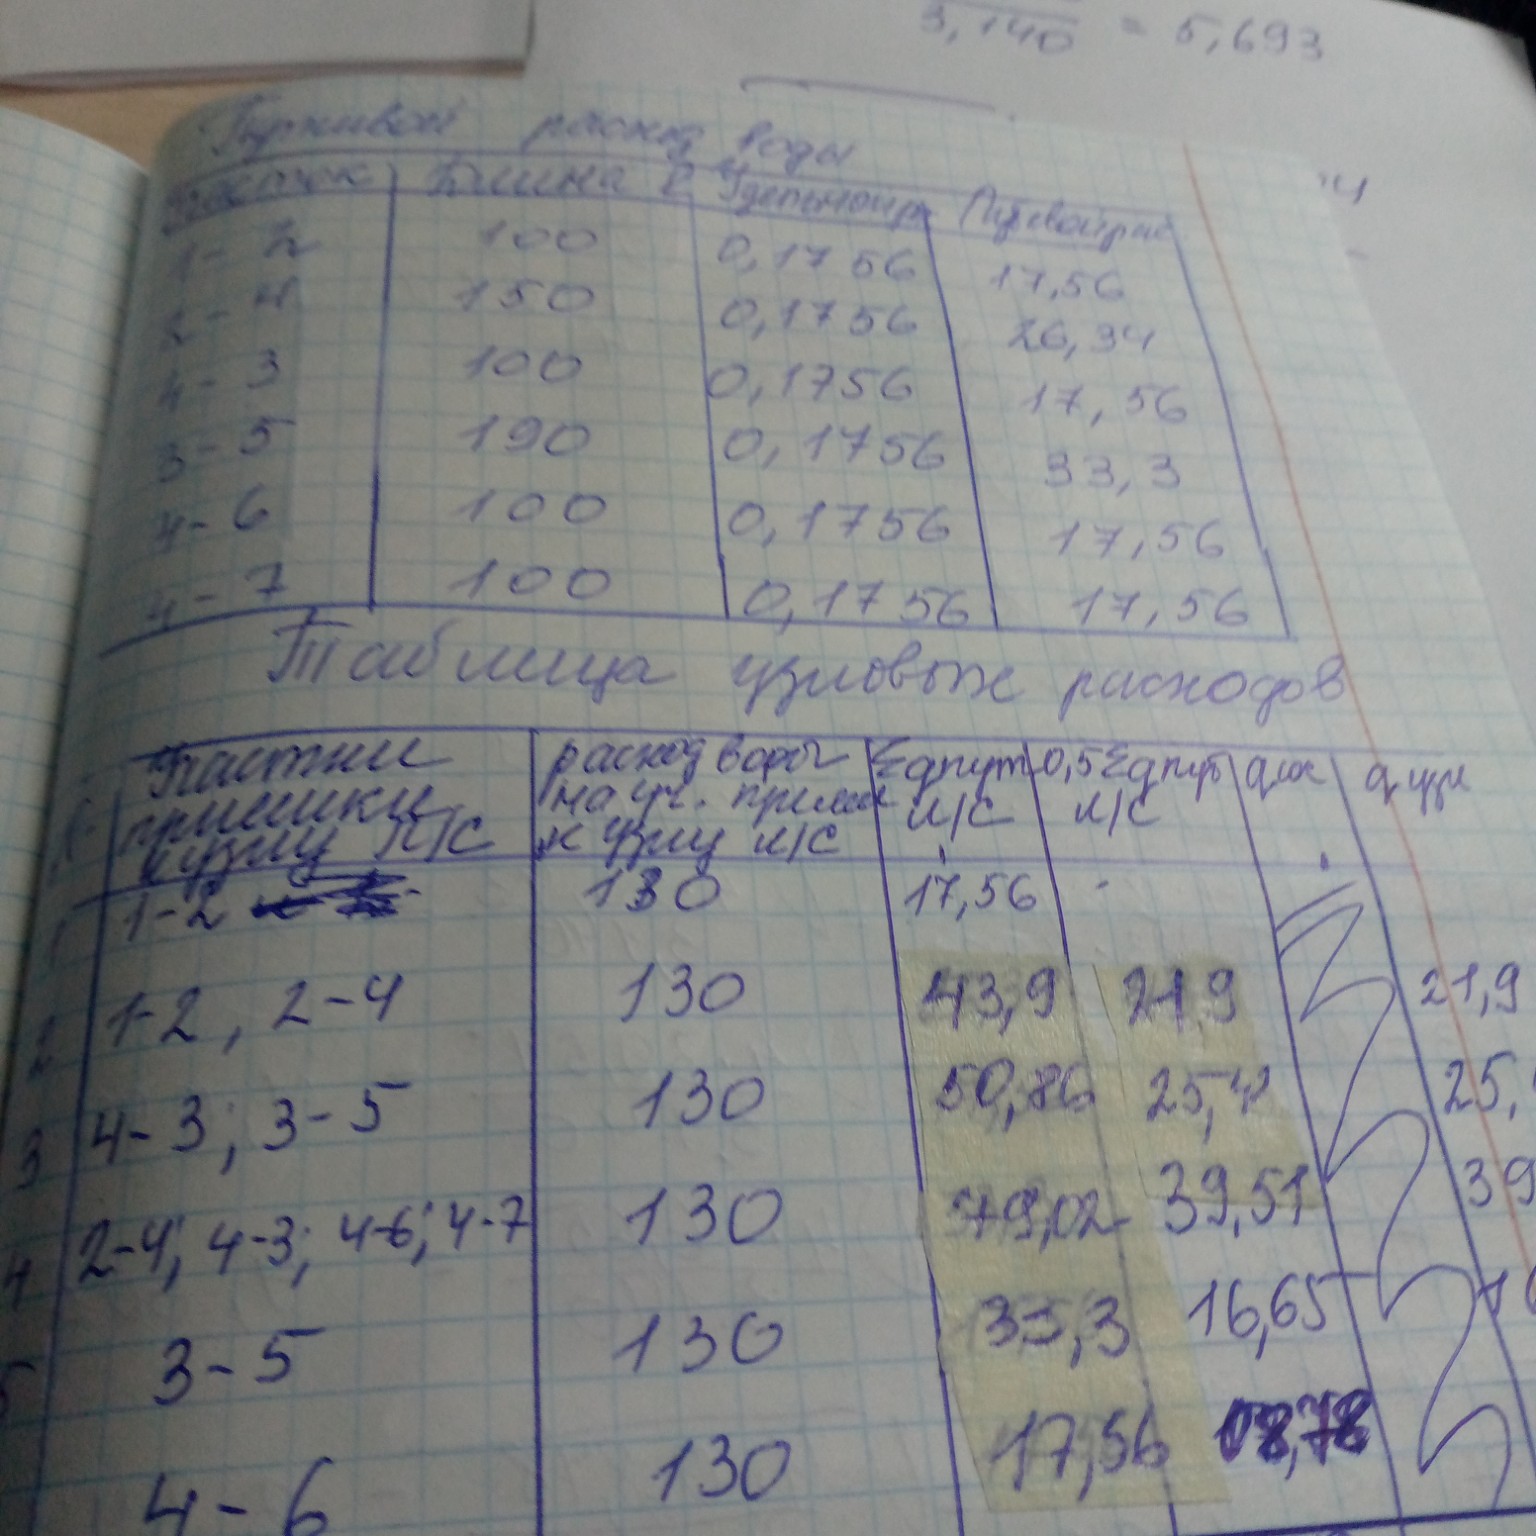 3,140 = 5,693
Путивой расход воды
Участок Длина l Удельной р Путевой рас
1-2 100 0,1756 17,56
2-4 150 0,1756 26,34
4-3 100 0,1756 17,56
3-5 190 0,1756 33,3
4-6 100 0,1756 17,56
4-7 100 0,1756 17,56
Таблица узловых расходов
расход воды Σqпут 0,5Σqпут q узл
на уч. л/с л/с
к узлу л/с к узлу л/с
1 1-2 130 17,56
2 1-2, 2-4 130 43,9 21,9 21,9
3 4-3; 3-5 130 50,86 25,4 25,
4 2-4; 4-3; 4-6; 4-7 130 79,02 39,51 39
5 3-5 130 33,3 16,65 16
4-6 130 17,56 08,78